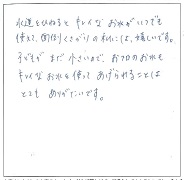 水道をひねると キレイな お水がいつでも
使えて、面倒くさがりの私には、嬉しいです。
子どもが まだ 小さいので、お風呂のお水も
キレイな お水を使って あげられることは
とても ありがたいです。